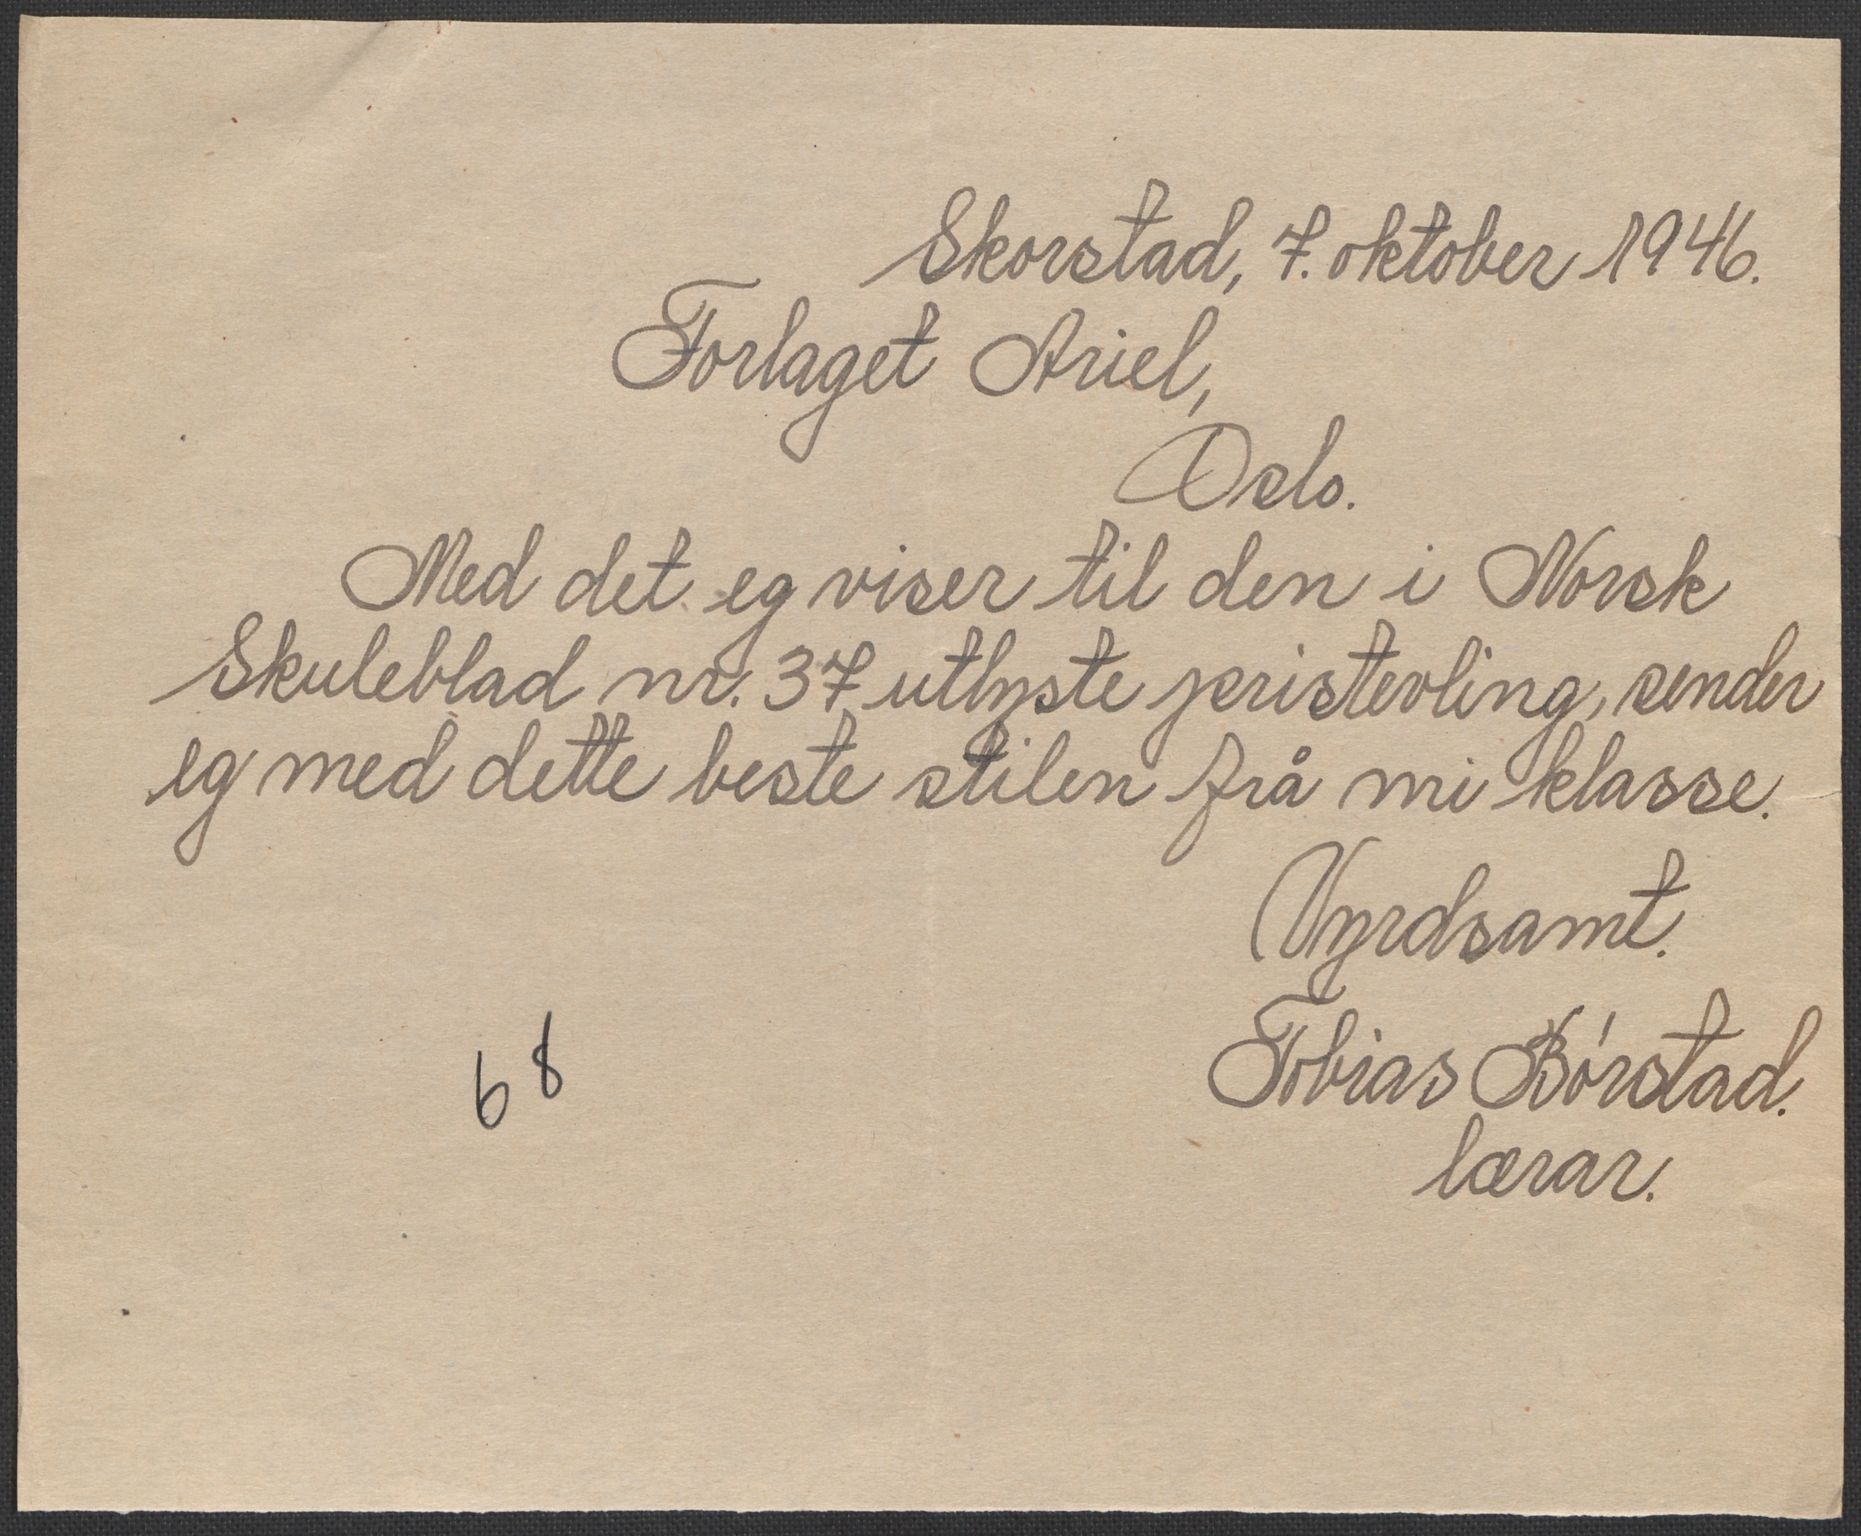 Skorstad, 7. oktober 1946.
Forlaget Ariel,
Oslo.
Med det eg viser til den i Norsk
Skuleblad nr. 37 utlyste pristevling, sender
eg med dette beste stilen frå mi klasse.
Vyrdsamt.
Tobias Bórstad.
lærar.
68